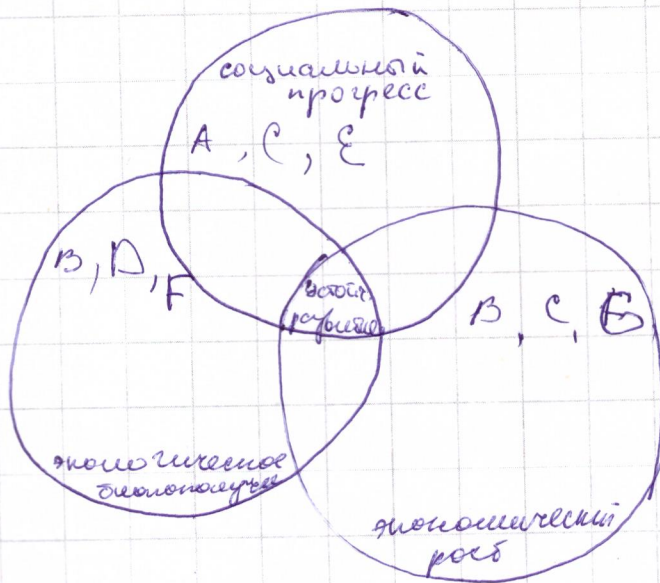 социальный
прогресс
A, C, E
B, D, F
устойч.
развитие
B, C, E
экологическое
благополучие
экономический
рост